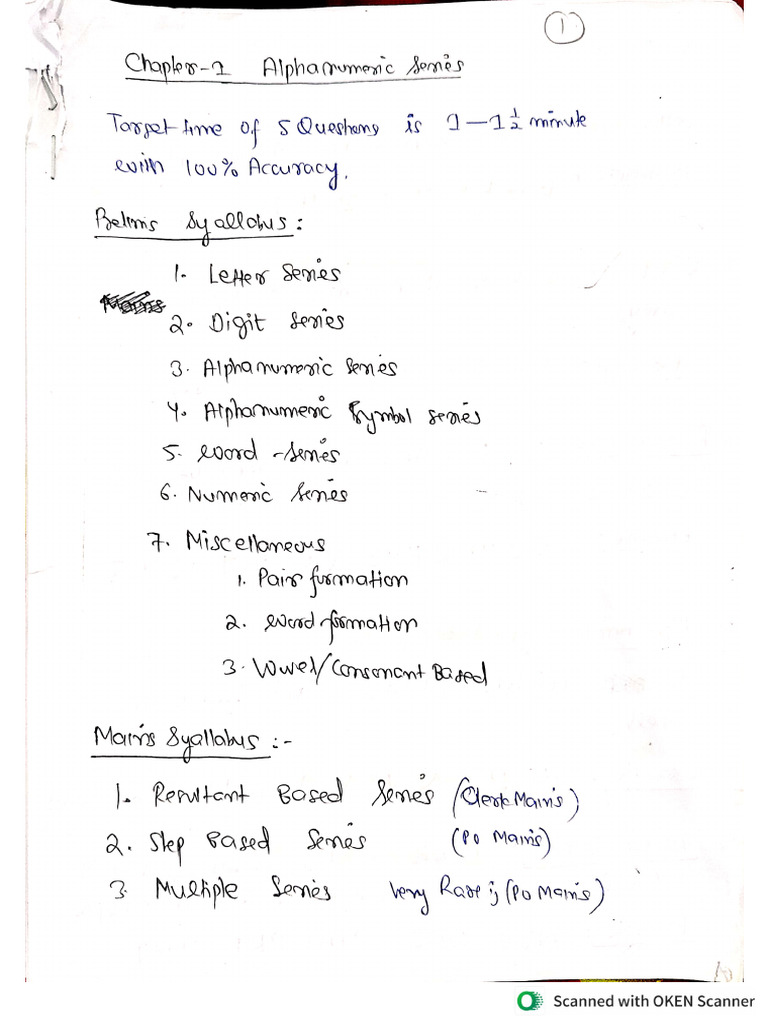 1
Chapter-1 Alphanumeric Series
Target time of 5 Questions is 1-1 1/2 minute
with 100% Accuracy.
Prelims Syallabus:
1. Letter Series
Mains
2. Digit Series
3. Alphanumeric Series
4. Alphanumeric Symbol Series
5. Word-Series
6. Numeric Series
7. Miscellaneous
1. Pair formation
2. Word formation
3. Vowel/Consonant Based
Mains Syallabus:-
1. Resultant Based Series (Clerk Mains)
2. Step Based Series (Po Mains)
3. Multiple Series Very Rare; (Po Mains)
Scanned with OKEN Scanner